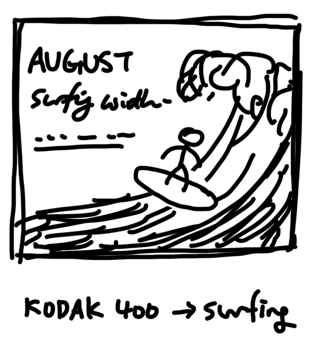 AUGUST
surfig width-
KODAK 400 → surfing